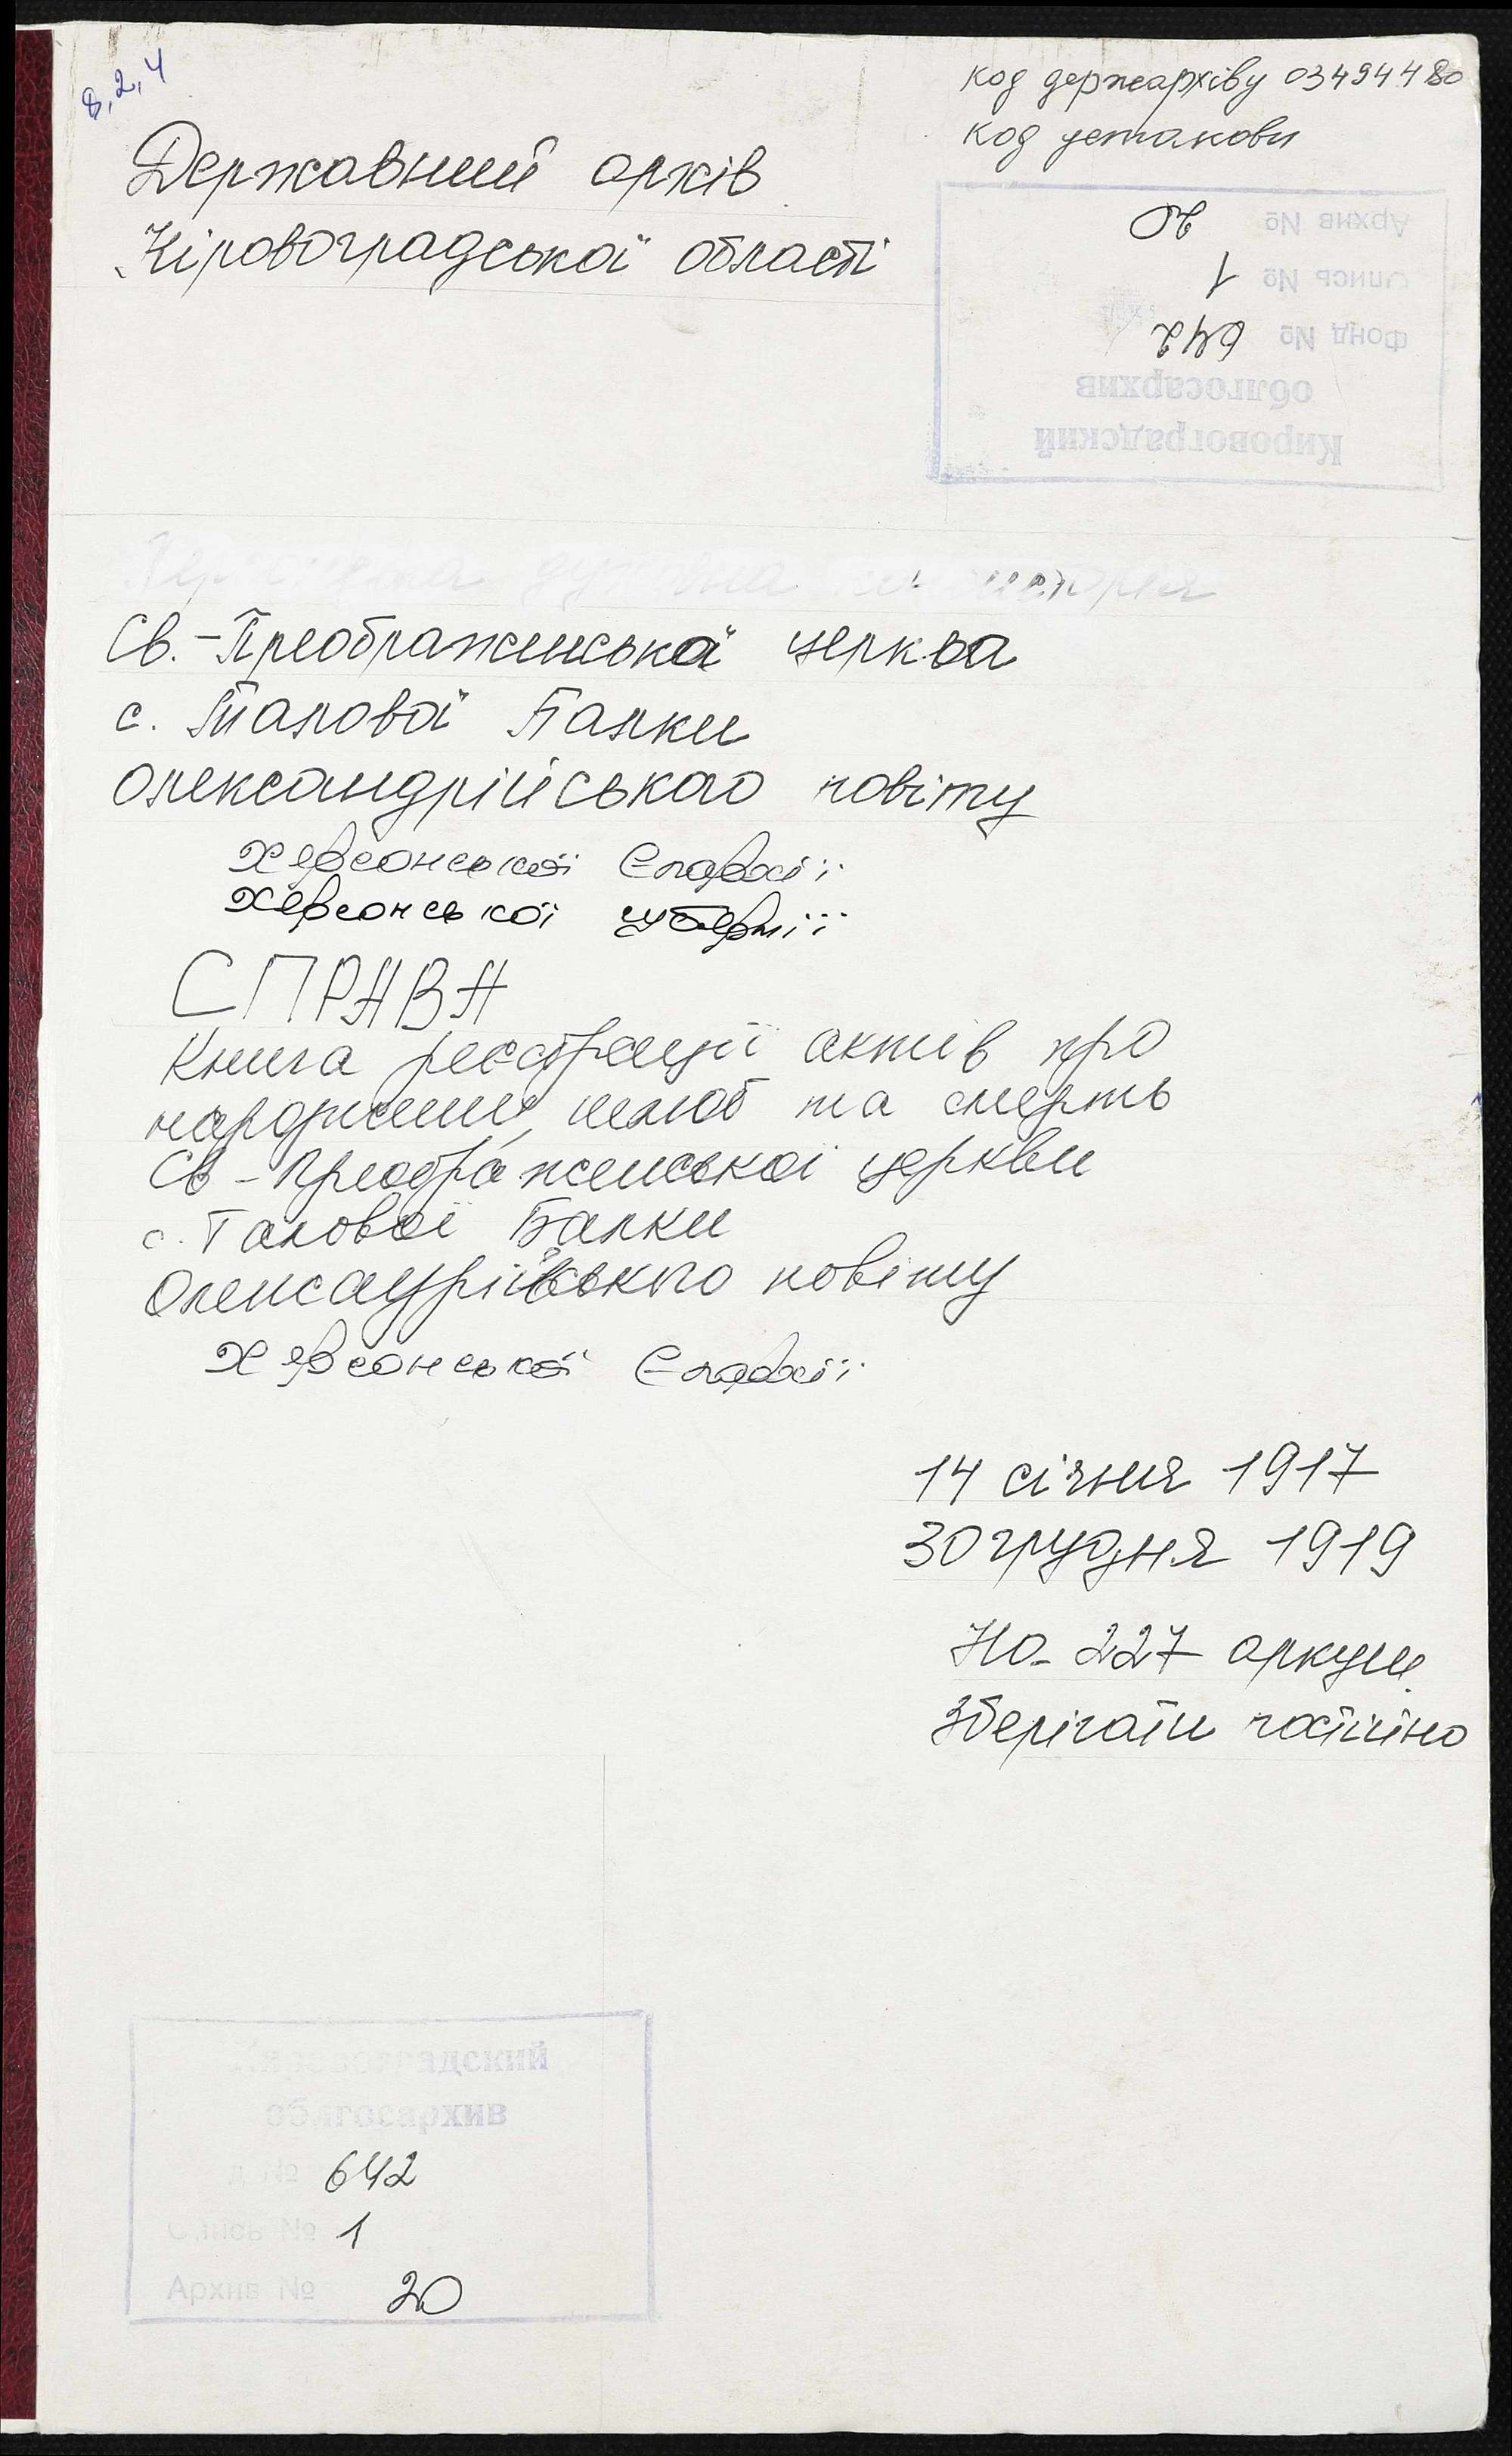 8,2,4
код держархіву 03494480
код установи
Державний архів
Кіровоградської області
Архив № 20
Опись № 1
Фонд № 642
облгосархив
Кировоградский
духовна
Св.-Преображенська церква
с. Талової Балки
Олександрійського повіту
Херсонської Єпархії
Херсонської губернії
СПРАВА
Книга реєстрації актів про
народження, шлюб та смерть
Св-Преображенської церкви
с. Талової Балки
Олександрійського повіту
Херсонської Єпархії
14 січня 1917
30 грудня 1919
На 227 аркуш.
Зберігати постійно
Кировоградский
облгосархив
д № 642
Опись № 1
Архив № 20